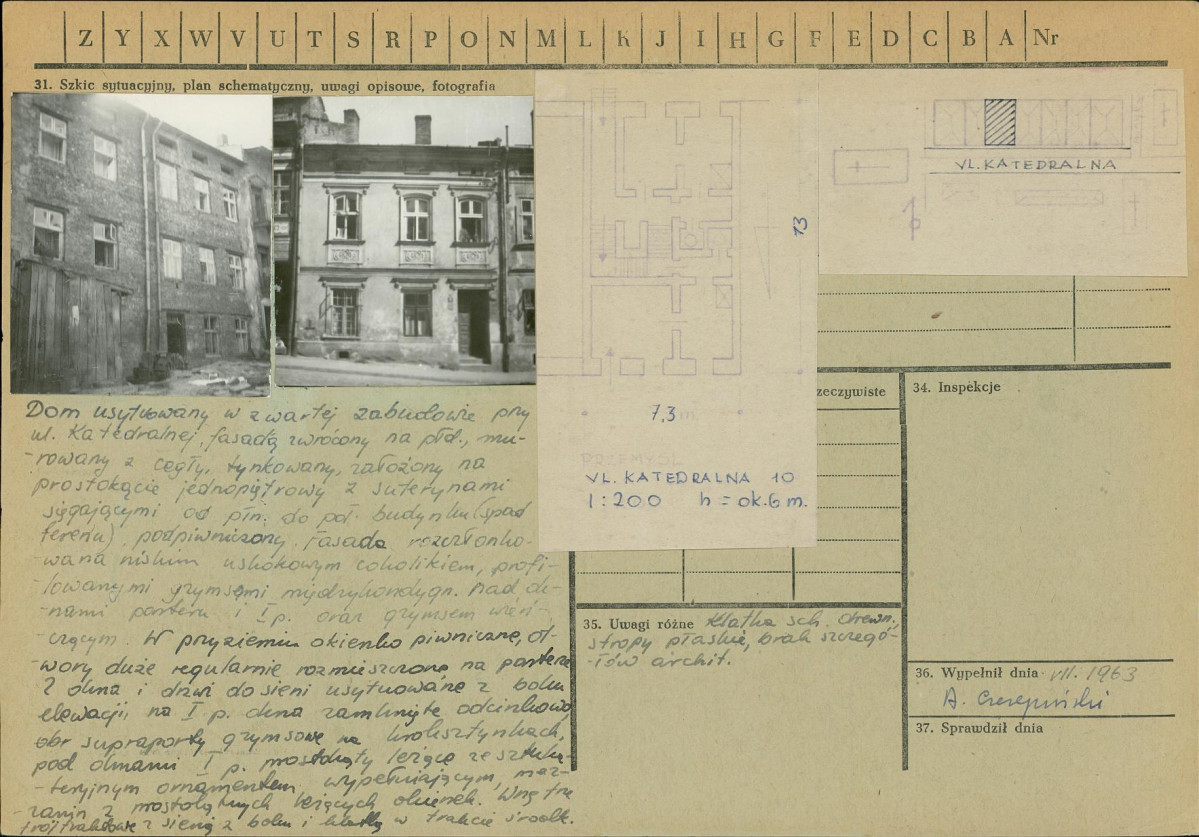 Z Y X W V U T S R P O N M L K J I H G F E D C B A Nr
31. Szkic sytuacyjny, plan schematyczny, uwagi opisowe, fotografia
UL. KATEDRALNA
13
7,3 m
PRZEMYŚL
UL. KATEDRALNA 10
1:200 h = ok. 6 m.
Dom usytuowany w zwartej zabudowie przy
ul. Katedralnej, fasadą zwrócony na płd., mu-
-rowany z cegły, tynkowany, założony na
prostokącie jednopiętrowy z suterynami
sięgającymi od płn. do poł. budynku (spad
terenu) podpiwniczony. Fasada rozczłonko-
-wana niskim uskokowym cokolikiem, profi-
-lowanymi gzymsami międzykondygn. nad ok-
-nami parteru i I p. oraz gzymsem wień-
-czącym. W przyziemiu okienko piwniczne, ot-
-wory duże regularnie rozmieszczone na parterze
2 okna i drzwi do sieni usytuowane z boku
elewacji, na I p. okna zamknięte odcinkowo,
obr supraporty gzymsowe na kroksztynkach,
pod oknami I p. prostokąty leżące ze sztuka-
-teryjnym ornamentem wypełniającym,
z prostokątnych leżących okienek. Wnętrze
trójtraktowe z sienią z boku i klatką w trakcie środk.
zeczywiste
34. Inspekcje
35. Uwagi różne Klatka sch. drewn.
stropy płaskie, brak szczegó-
-łów archit.
36. Wypełnił dnia VII. 1963
37. Sprawdził dnia